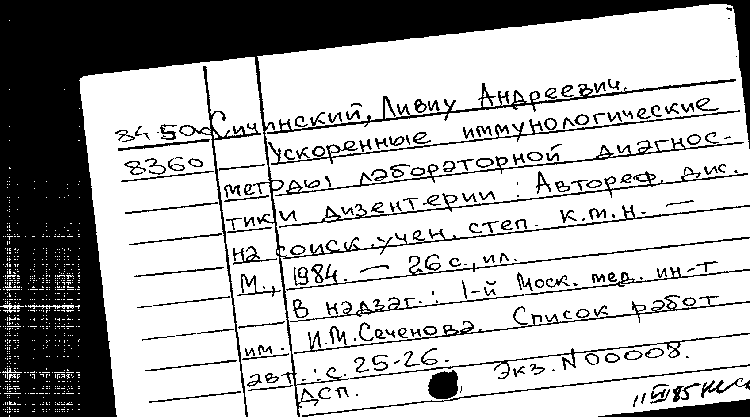 84-5 Сичинский, Ливиу Андреевич.
8360 Ускоренные иммунологические
методы лабораторной диагнос-
тики дизентерии : Автореф. дис.
на соиск. учен. степ. к.м.н. —
М., 1984. — 26 с., ил.
В надзаг.: 1-й Моск. мед. ин-т
им. И.М. Сеченова. Список работ
авт.: с. 25-26.
ДСП. Экз. N00008.